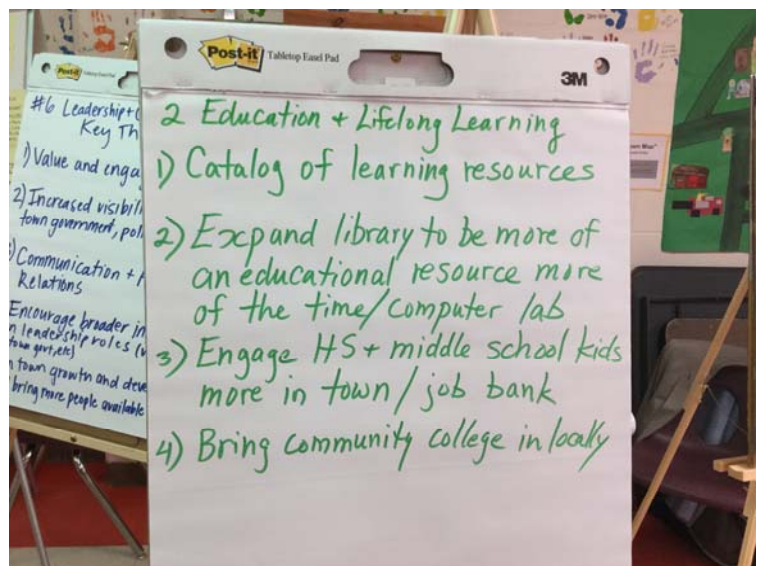 Post-it Tabletop Easel Pad
3M
2 Education + Lifelong Learning
1) Catalog of learning resources
2) Expand library to be more of
an educational resource more
of the time/computer lab
3) Engage HS + middle school kids
more in town / job bank
4) Bring community college in locally
Post-it Tabletop Easel Pad
#6 Leadership +
Key Th
1) Value and enga
2) Increased visibili
town government, pol
Communication +
Relations
Encourage broader in
leadership roles
town govt, etc)
town growth and deve
bring more people available